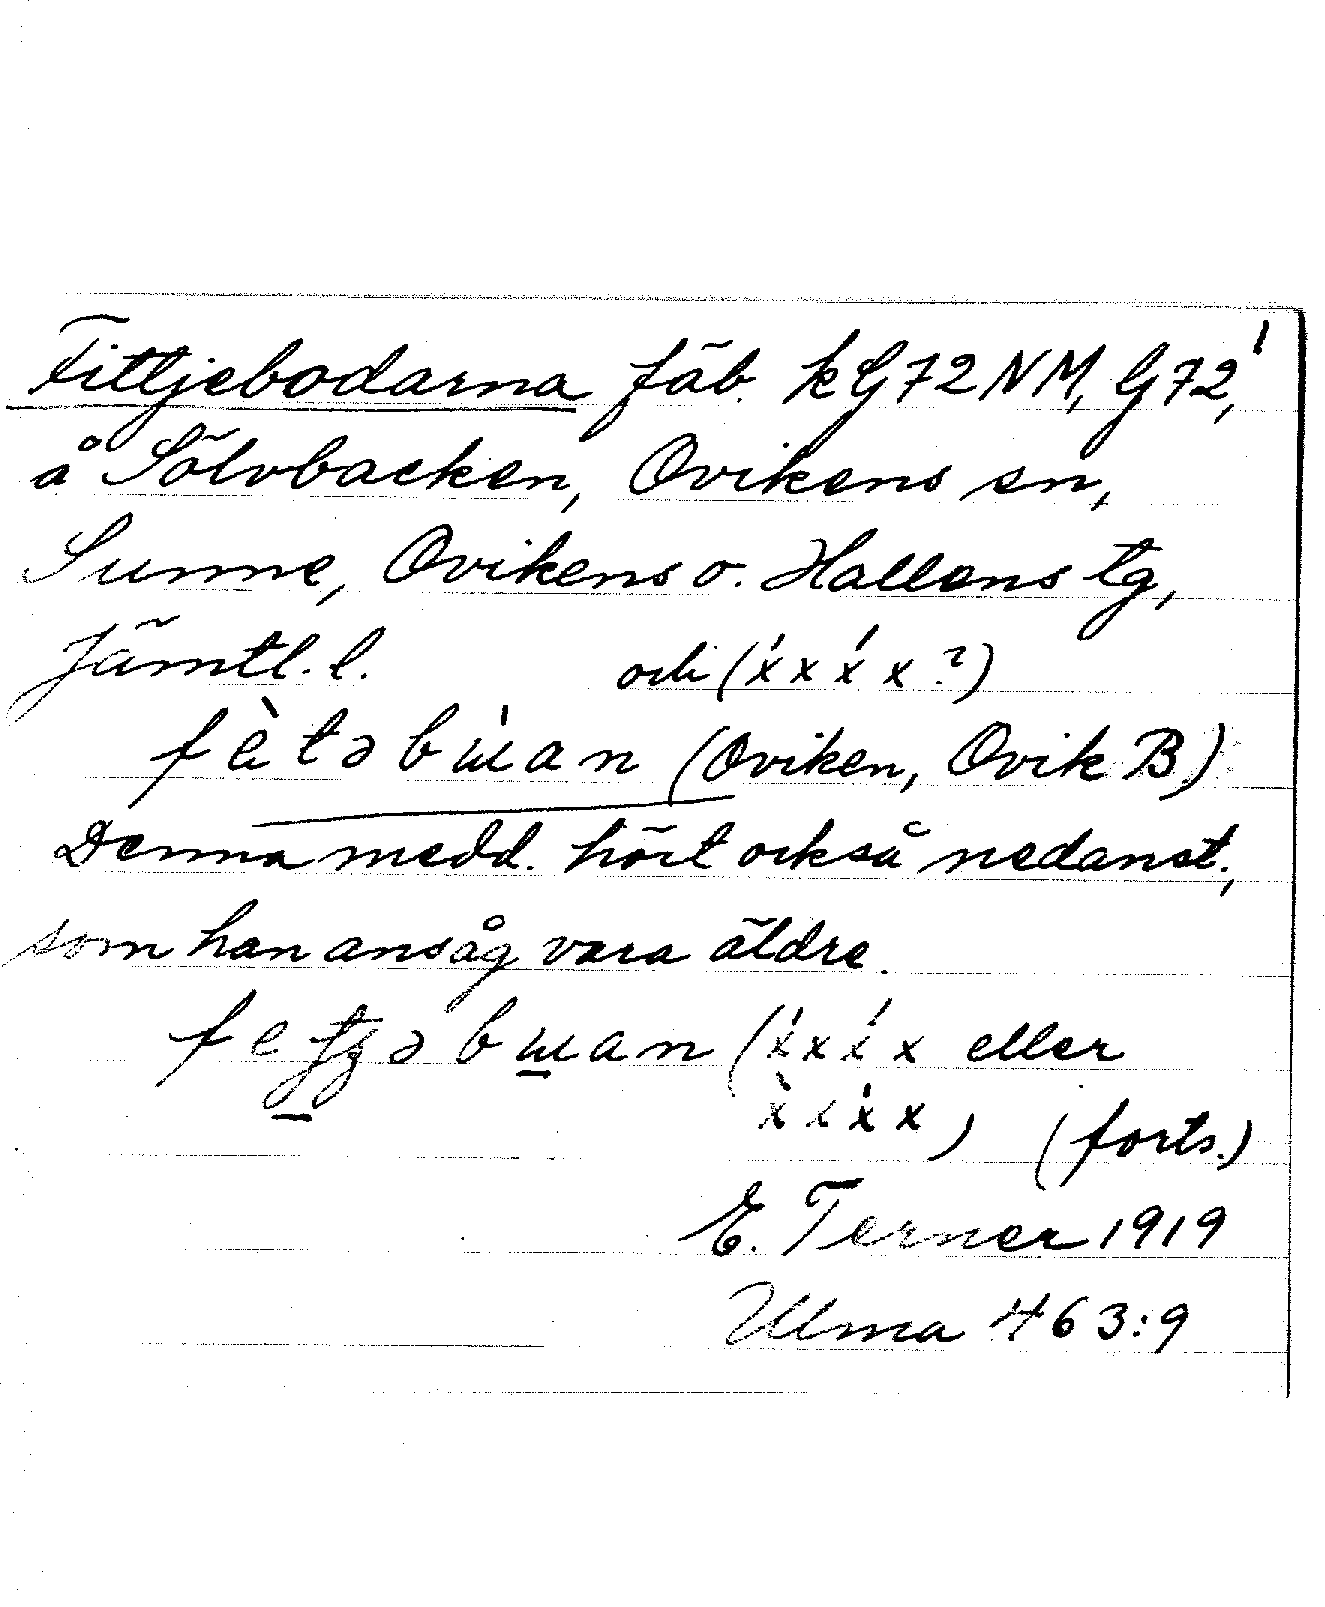 Fittjebodarna fäb. kG72NM, G72,
å Sölvbacken, Ovikens sn,
Sunne, Ovikens o. Hallens tg,
Jämtl. l. och (x́ x x́ x ?)
fètəbɯ́an (Oviken, Ovik B)
Denna medd. hört också nedanst.,
som han ansåg vara äldre.
bɯan (x́ x x́ x eller
x̀ x x́ x) (forts.)
E. Terner 1919
Ulma 463:9